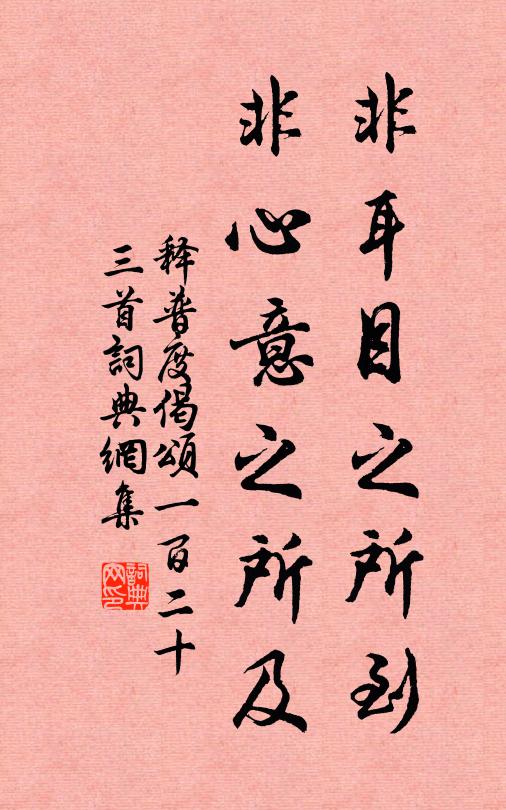 非耳目之所到
非心意之所及
释普度偈頌一百二十
三首詞典網集
詞典
網印